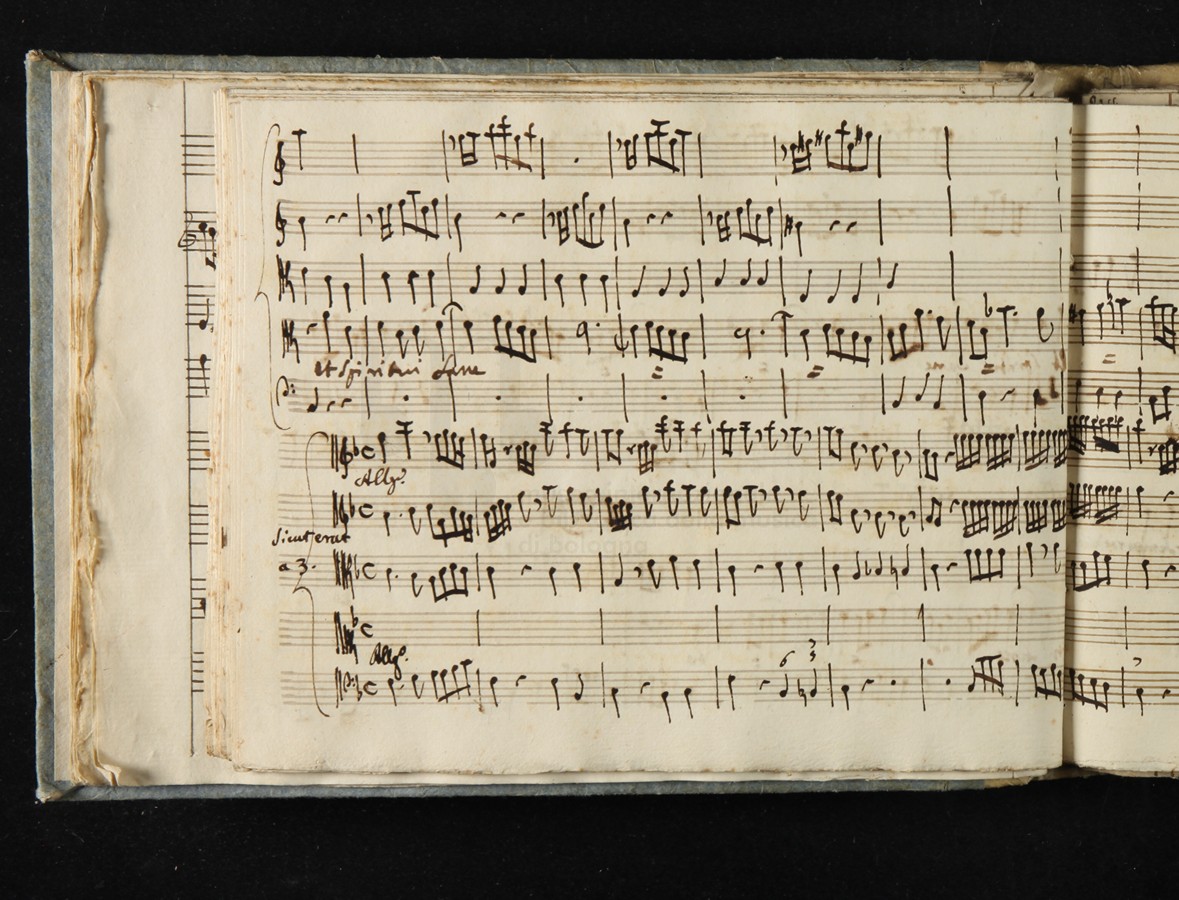 et Spiritui Sanc
Allº.
Sicut erat
a 3.
Allº.
6 3